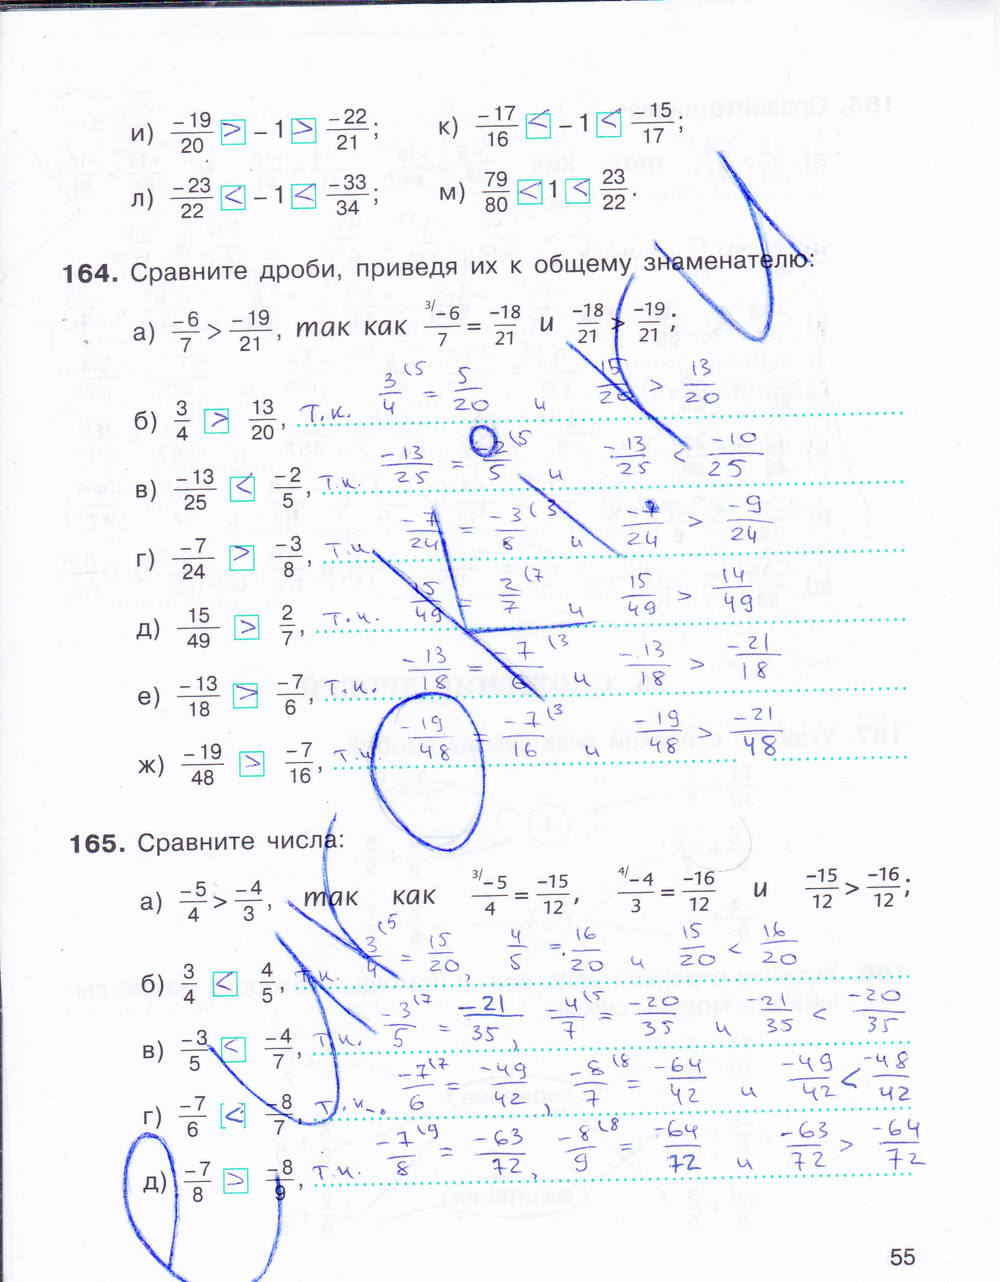 и) -19/20 > - 1 > -22/21; к) -17/16 < - 1 < -15/17;
л) -23/22 < - 1 < -33/34; м) 79/80 < 1 < 23/22.
164. Сравните дроби, приведя их к общему знаменателю:
а) -6/7 > -19/21, так как 3/-6/7 = -18/21 и -18/21 > -19/21;
б) 3/4 > 13/20, т.к. 3/4 (5 = 5/20 и 15/20 > 13/20
в) -13/25 < -2/5, т.к. -13/25 = -2/5 (5 -13/25 < -10/25
г) -7/24 > -3/8, т.к. -7/24 = -3/8 (3 и -7/24 > -9/24
д) 15/49 > 2/7, т.к. 15/49 = 2/7 (7 и 15/49 > 14/49
е) -13/18 > -7/6, т.к. -13/18 = -7/6 (3 и -13/18 > -21/18
ж) -19/48 > -7/16, т.к. -19/48 = -7/16 (3 и -19/48 > -21/48
165. Сравните числа:
а) -5/4 > -4/3, так как 3/-5/4 = -15/12, 4/-4/3 = -16/12 и -15/12 > -16/12;
б) 3/4 < 4/5, т.к. 3/4 (5 = 15/20, 4/5 = 16/20 и 15/20 < 16/20
в) -3/5 < -4/7, т.к. -3/5 (7 = -21/35, 4/7 (5 = -20/35 и -21/35 < -20/35
г) -7/6 < -8/7, т.к. -7/6 (7 = -49/42, -8/7 (8 = -64/42 и -49/42 < -48/42
д) -7/8 > -8/9, т.к. -7/8 (9 = -63/72, -8/9 (8 = -64/72 и -63/72 > -64/72
55